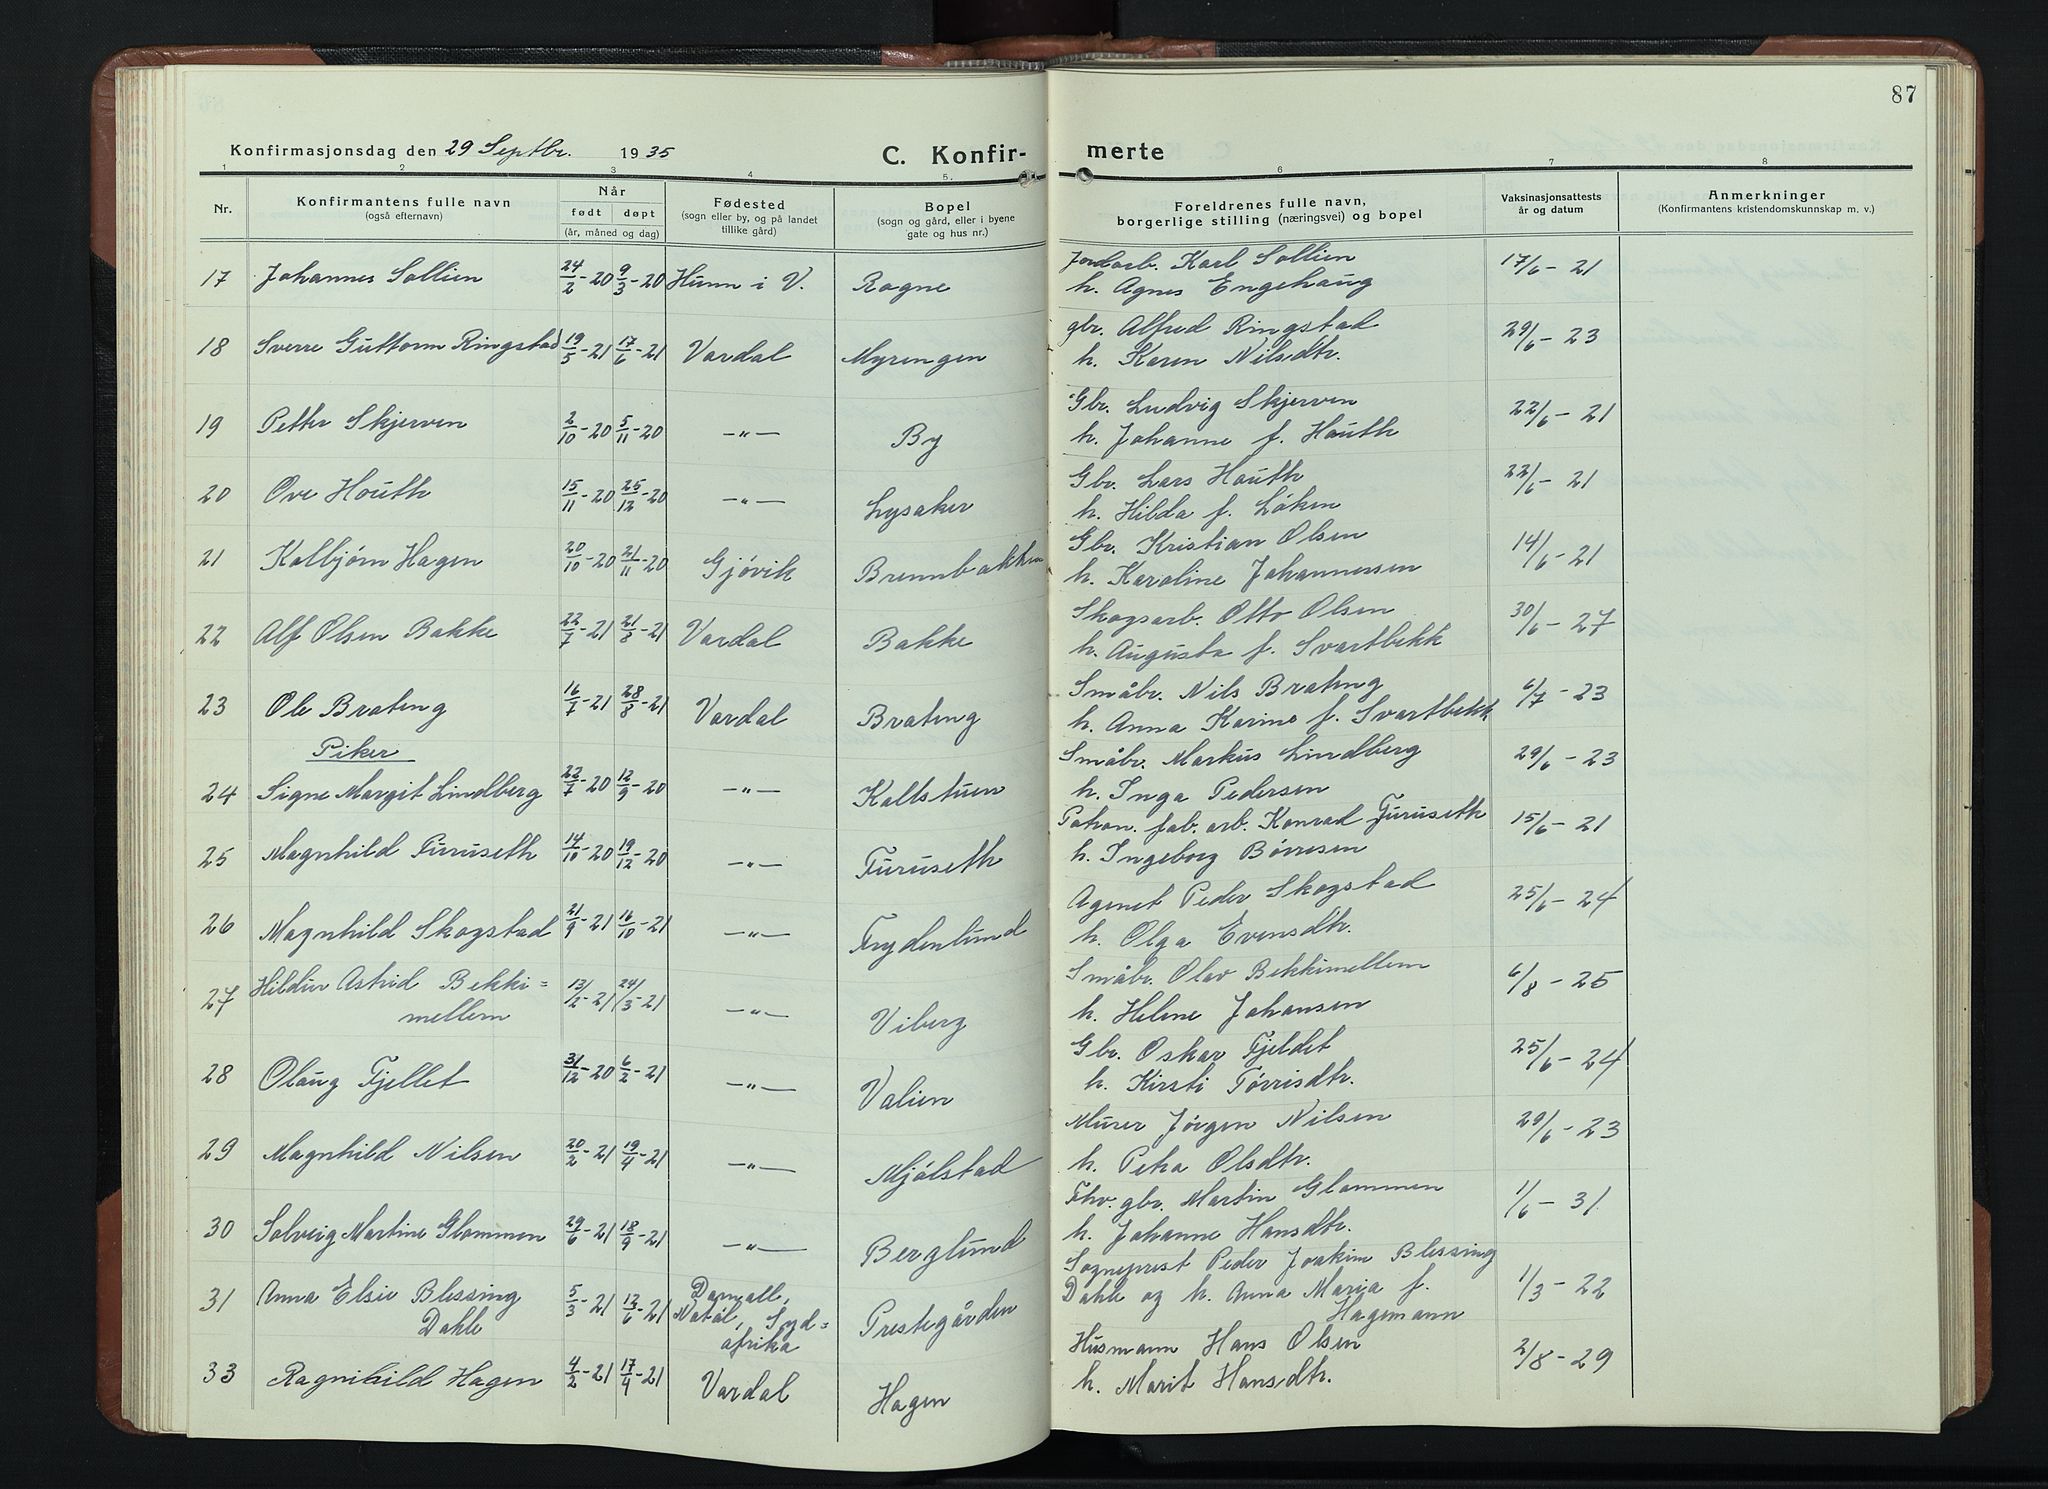 87
Konfirmasjonsdag den 29 Septbr. 1935
C. Konfir-
merte
1 2 3 4 5. 6 7 8
Nr.
Konfirmantens fulle navn
(også efternavn)
Når
født døpt
(år, måned og dag)
Fødested
(sogn eller by, og på landet
tillike gård)
Bopel
(sogn og gård, eller i byene
gate og hus nr.)
Foreldrenes fulle navn,
borgerlige stilling (næringsvei) og bopel
Vaksinasjonsattests
år og datum
Anmerkninger
(Konfirmantens kristendomskunnskap m. v.)
17 Johannes Sollien 24/2-20 9/3-20 Hunn i V. Rogne Jordarb. Karl Sollien 17/6-21
h. Agnes Engehaug
18 Sverre Guttorm Ringstad 19/5-21 17/6-21 Vardal Myrengen gbr. Alfred Ringstad 29/6-23
h. Karen Nilsdtr.
19 Petter Skjerven 2/10-20 5/11-20 -"- By Gbr. Ludvig Skjerven 22/6-21
h. Johanne f. Houth
20 Ove Houth 15/11-20 25/12-20 -"- Lysaker Gbr. Lars Houth 22/6-21
h. Hilda f. Løken
21 Kolbjørn Hagen 20/10-20 21/11-20 Gjøvik Brennbakken Gbr. Kristian Olsen 14/6-21
h. Karoline Johannessen
22 Alf Olsen Bakke 22/7-21 21/8-21 Vardal Bakke Skogsarb. Otto Olsen 30/6-27
h. Augusta f. Svartbekk
23 Ole Brateng 16/7-21 28/8-21 Vardal Brateng Småbr. Nils Brateng 6/7-23
h. Anna Karine f. Svartbekk
Piker
24 Signe Margit Lindberg 22/7-20 12/9-20 -"- Kallstuen Småbr. Markus Lindberg 29/6-23
h. Inga Pedersen
25 Magnhild Furuseth 14/10-20 19/12-20 -"- Furuseth fab. arb. Konrad Furuseth 15/6-21
h. Ingeborg Børresen
26 Magnhild Skogstad 21/9-21 16/10-21 -"- Frydenlund Agent Peder Skogstad 25/6-24
h. Olga Evensdtr.
27 Hildur Astrid Bekki=
mellem 13/2-21 24/3-21 -"- Viberg Småbr. Olav Bekkimellem 6/8-25
h. Helene Johansen
28 Olaug Fjellet 31/12-20 6/2-21 -"- Valien Gbr. Oskar Fjeldet 25/6-24
h. Kirsti Tørrisdtr.
29 Magnhild Nilsen 20/2-21 19/4-21 -"- Mjølstad Murer Jørgen Nilsen 29/6-23
h. Peka Olsdtr.
30 Solveig Martine Glommen 29/6-21 18/9-21 -"- Berglund Fhv. gbr. Martin Glommen 1/6-31
h. Johanne Hansdtr.
31 Anna Elsie Blessing
Dahle 5/3-21 13/6-21 Darnall,
Natal, Syd=
afrika Prestegården Sogneprest Peder Joakim Blessing 1/3-22
Dahle og h. Anna Maria f.
Hagemann
33 Ragnihild Hagen 4/2-21 17/4-21 Vardal Hagen Husmann Hans Olsen 2/8-29
h. Marit Hansdtr.